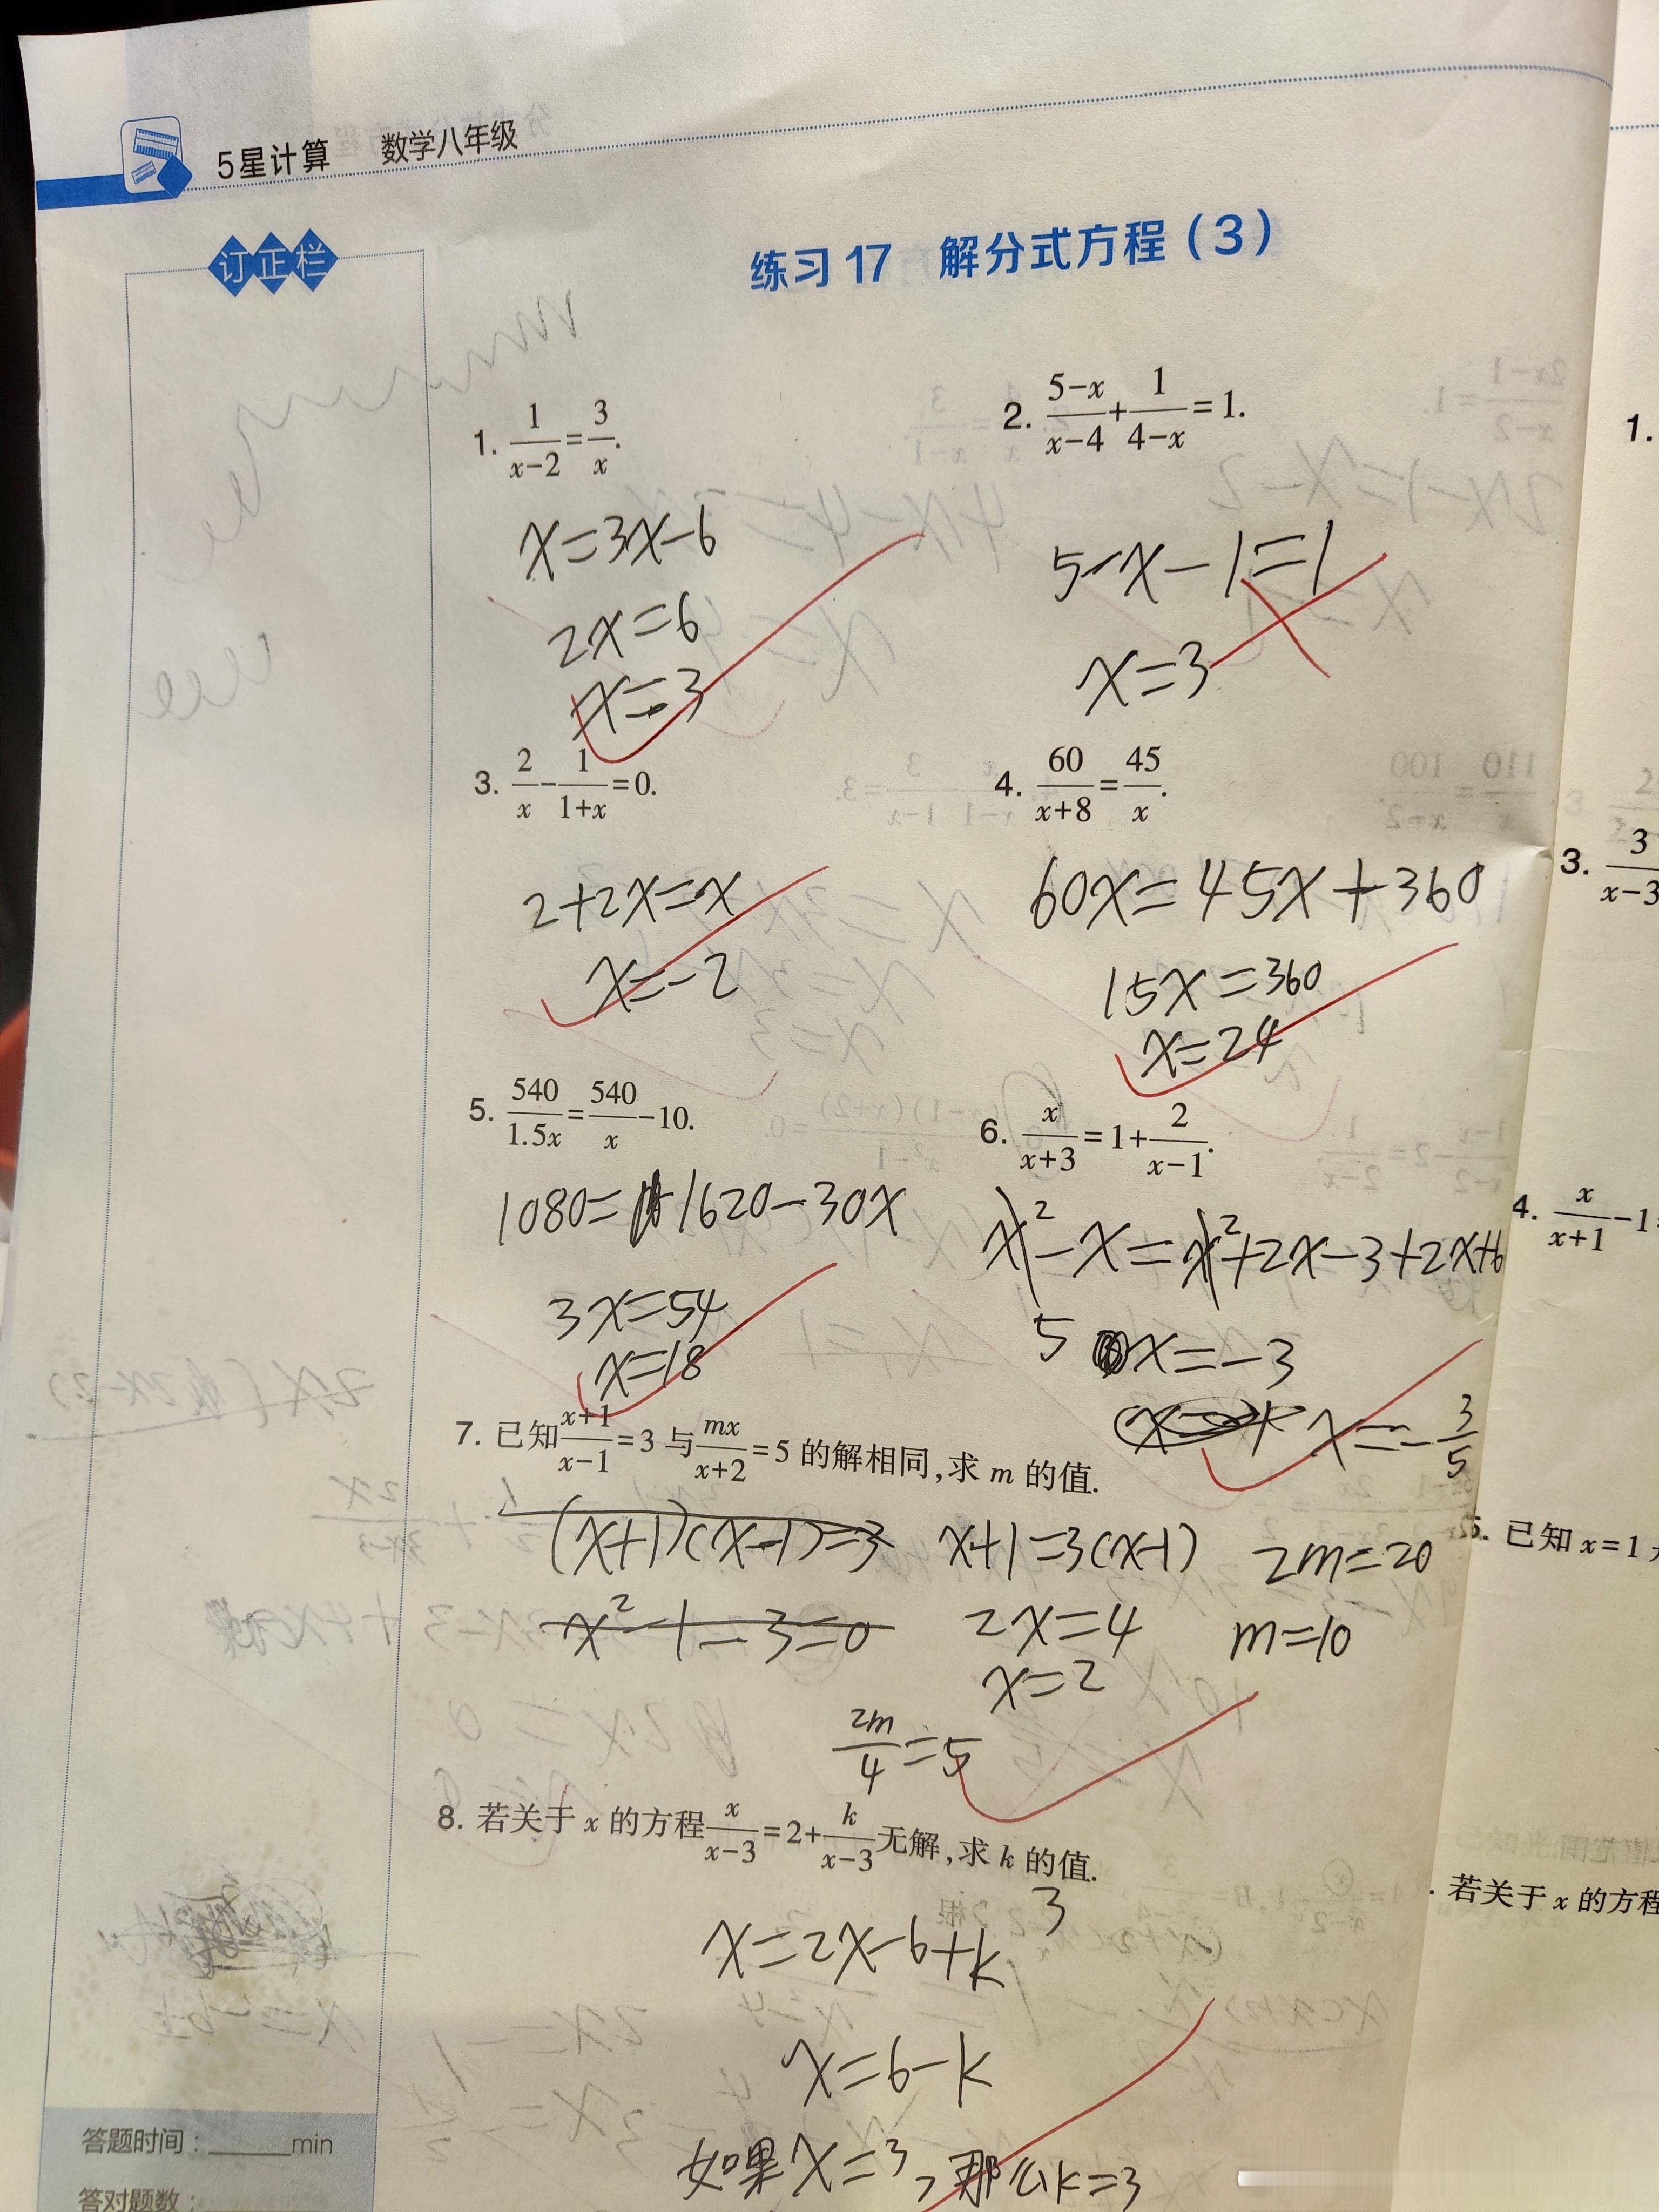 5星计算 数学八年级
订正栏
练习17 解分式方程(3)
1. 1/(x-2)=3/x.
x=3x-6
2x=6
x=3
2. (5-x)/(x-4)+1/(4-x)=1.
5-x-1=1
x=3
3. 2/x-1/(1+x)=0.
2+2x=x
x=-2
4. 60/(x+8)=45/x.
60x=45x+360
15x=360
x=24
5. 540/1.5x=540/x-10.
1080=1620-30x
3x=54
x=18
6. x/(x+3)=1+2/(x-1).
x²-x=x²+2x-3+2x+6
5x=-3
x=-3/5
7. 已知(x+1)/(x-1)=3与mx/(x+2)=5的解相同,求m的值.
(x+1)(x-1)=3
x²-1-3=0
x+1=3(x-1)
2x=4
x=2
2m/4=5
2m=20
m=10
8. 若关于x的方程x/(x-3)=2+k/(x-3)无解,求k的值.
3
x=2x-6+k
x=6-k
如果x=3,那么k=3
答题时间:______min
答对题数:
1.
3. 3/(x-3
4. x/(x+1)-1
5. 已知x=1
. 若关于x的方程